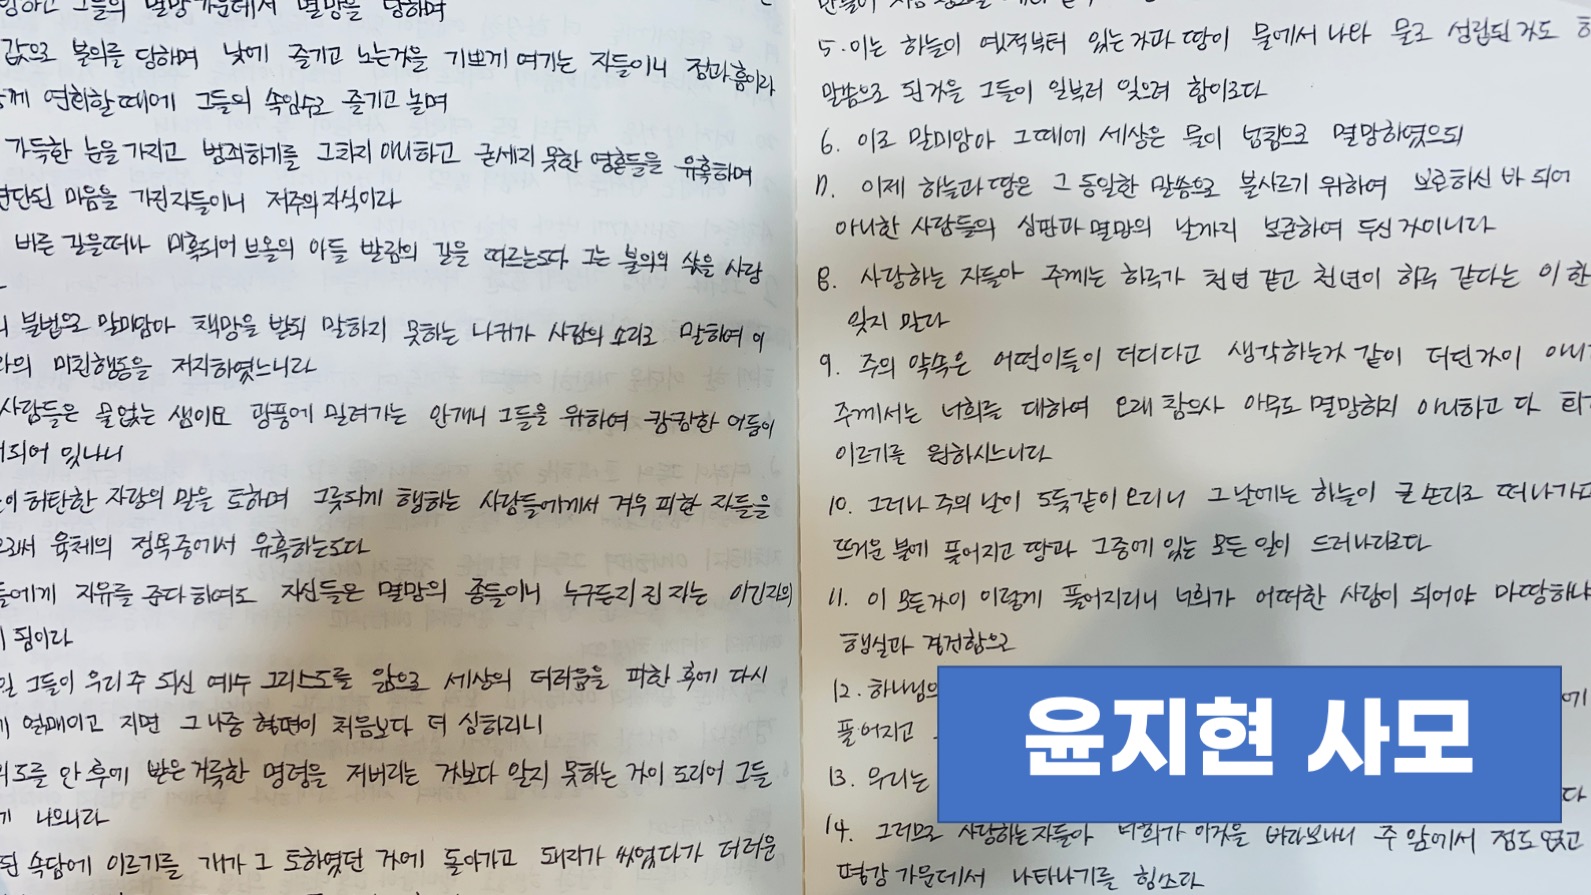 그들의 멸망 가운데서 멸망을 당하며
값으로 불의를 당하며 낮에 즐기고 노는것을 기쁘게 여기는 자들이니 점과 흠이라
함께 연회할 때에 그들의 속임수로 즐기고 놀며
가득한 눈을 가지고 범죄하기를 그치지 아니하고 굳세지 못한 영혼들을 유혹하며
연단된 마음을 가진자들이니 저주의 자식이라
바른 길을 떠나 미혹되어 브올의 아들 발람의 길을 따르는도다 그는 불의의 삯을 사랑
불법으로 말미암아 책망을 받되 말하지 못하는 나귀가 사람의 소리로 말하여 이
미친행동을 저지하였느니라
사람들은 물없는 샘이요 광풍에 밀려가는 안개니 그들을 위하여 캄캄한 어둠이
되어 있나니
허탄한 자랑의 말을 토하며 그릇되게 행하는 사람들에게서 겨우 피한 자들을
육체의 정욕중에서 유혹하는도다
들에게 자유를 준다 하여도 자신들은 멸망의 종들이니 누구든지 진 자는 이긴자의
됨이라
그들이 우리 주 되신 예수 그리스도를 앎으로 세상의 더러움을 피한 후에 다시
얽매이고 지면 그 나중 형편이 처음보다 더 심하리니
의도를 안 후에 받은 거룩한 명령을 저버리는 것보다 알지 못하는 것이 도리어 그들
나으니라
속담에 이르기를 개가 그 토하였던 것에 돌아가고 돼지가 씻었다가 더러운
5. 이는 하늘이 옛적부터 있는 것과 땅이 물에서 나와 물로 성립된 것도 하
말씀으로 된것을 그들이 일부러 잊으려 함이로다
6. 이로 말미암아 그때에 세상은 물이 넘침으로 멸망하였으되
7. 이제 하늘과 땅은 그 동일한 말씀으로 불사르기 위하여 보호하신 바 되어
아니한 사람들의 심판과 멸망의 날까지 보존하여 두신 것이니라
8. 사랑하는 자들아 주께는 하루가 천년 같고 천년이 하루 같다는 이 한
잊지 말라
9. 주의 약속은 어떤이들이 더디다고 생각하는것 같이 더딘것이 아니
주께서는 너희를 대하여 오래 참으사 아무도 멸망하지 아니하고 다 회
이르기를 원하시느니라
10. 그러나 주의 날이 도둑같이 오리니 그 날에는 하늘이 큰 소리로 떠나가고
뜨거운 불에 풀어지고 땅과 그중에 있는 모든 일이 드러나리로다
11. 이 모든것이 이렇게 풀어지리니 너희가 어떠한 사람이 되어야 마땅하냐
행실과 경건함으로
12. 하나님의
풀어지고
13. 우리는
14. 그러므로 사랑하는자들아 너희가 이것을 바라보나니 주 앞에서 점도 없고
평강 가운데서 나타나기를 힘쓰라
윤지현 사모